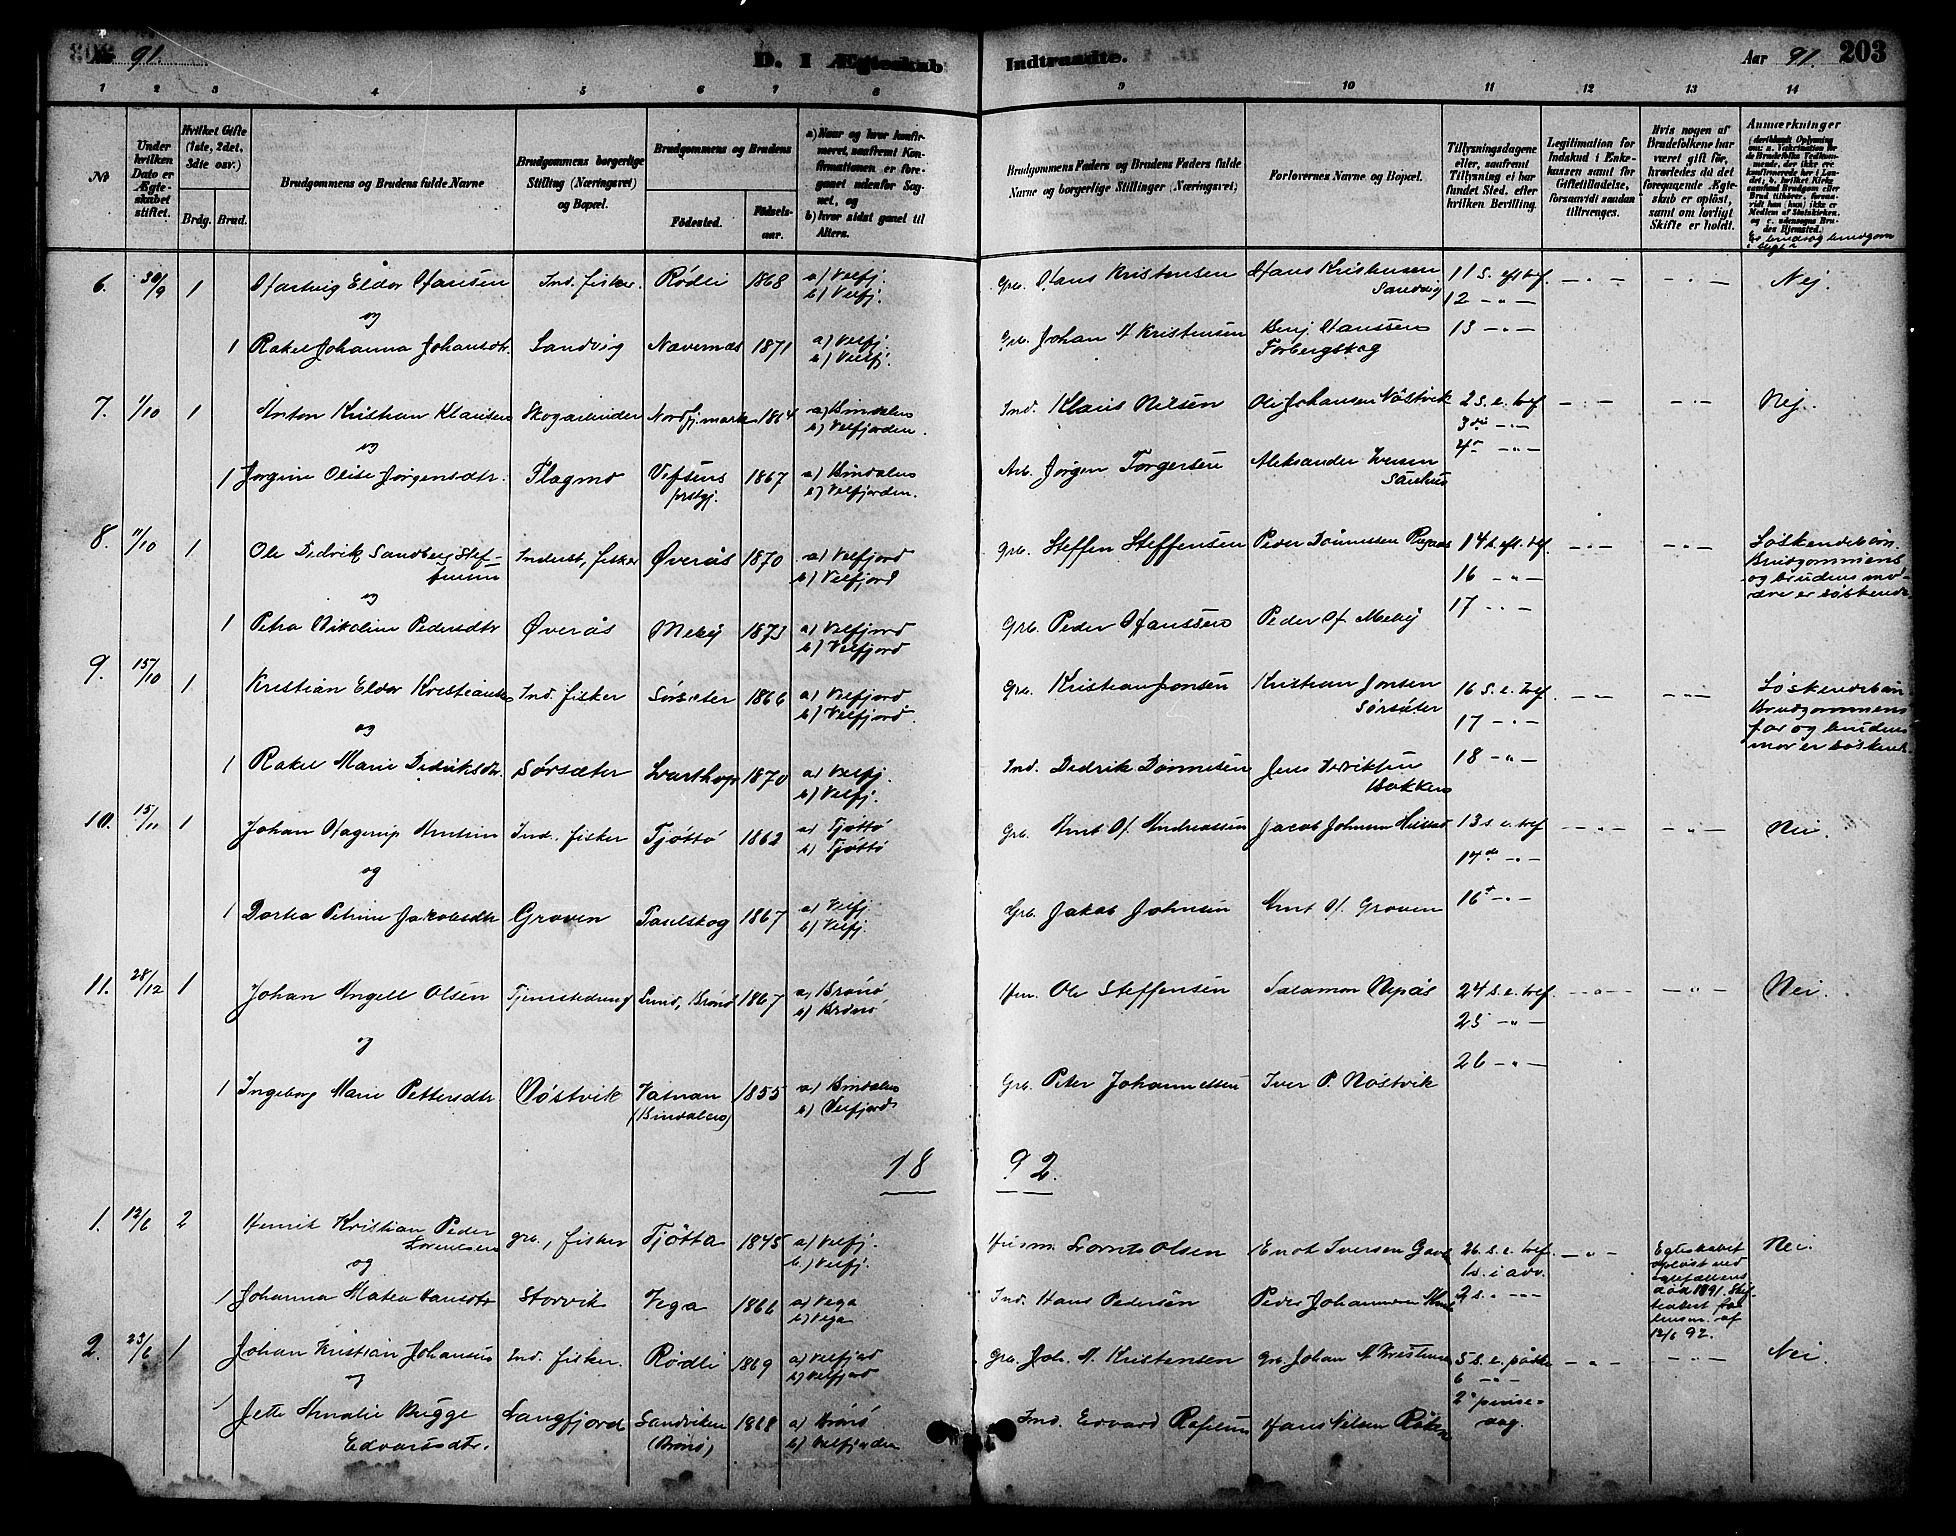 91.
D. I Ægteskab
Indtraadte.
Aar 91. 203
1 2 3 4 5 6 7 8 9 10 11 12 13 14
No
Under hvilken Dato er Ægteskabet stiftet.
Hvilket Gifte (1ste, 2det, 3die osv.)
Brdg. Brud.
Brudgommens og Brudens fulde Navne
Brudgommens borgerlige Stilling (Næringsvei) og Bopæl.
Brudgommens og Brudens
Fødested.
Fødselsaar.
a) Naar og hvor konfirmeret, saafremt Konfirmationen er foregaaet udenfor Sognet, og
b) hvor sidst gaaet til Alters.
Brudgommens Faders og Brudens Faders fulde Navne og borgerlige Stillinger (Næringsvei)
Forlovernes Navne og Bopæl.
Tillysningsdagene eller, saafremt Tillysning ei har fundet Sted, efter hvilken Bevilling.
Legitimation for Indskud i Enkekassen samt for Giftetilladelse, forsaavidt saadan tiltrænges.
Hvis nogen af Brudefolkene har været gift før, hvorledes da det foregaaende Ægteskab er opløst, samt om lovligt Skifte er holdt.
Anmærkninger
6. 30/9 1 Hartvig Eldor Hansen Ind. fisker. Rødli 1868 a) Velfj. b) Velfj. Grb. Hans Kristensen Hans Kristensen Sandvig 11 s. eft. tref. 12 – „ – – „ – – „ – Nej.
og
1 Rakel Johanna Johansdtr. Sandvig Nævernes 1871 a) Velfj. b) Velfj. Grb. Johan A Kristensen Benj. Hanssen Forbergskog 13 – „ –
7. 1/10 1 Anton Kristian Klausen Skogarbeider Nordfj.mark 1864 a) Bindalen b) Velfjorden. Ind. Klaus Nilsen Ole Johansen Nøstvik 2 s. e. tref. 3die – „ – 4de – „ – – „ – – „ – Nej.
og
1 Jørgine Olise Jørgensdtr. Flagmo Vefsens prstgj. 1867 a) Bindalen b) Velfjorden. Arb. Jørgen Torgersen Aleksander Iversen
8. 11/10 1 Ole Didrik Sandberg Steffensen Inderst, fisker Øverås 1870 a) Velfjord b) Velfjord Grb. Steffen Steffensen Peder Dønnesen 14 s. eft. tref. 16 – „ – – „ – – „ – Søskendebørn. Brudgommens og brudens mødre er søskende.
og
1 Petra Nikoline Pedersdtr Øverås Mebÿ 1873 a) Velfjord b) Velfjord Grb. Peder Hanssen Peder H. Mebÿ 17 – „ –
9. 15/10 1 Kristian Eldor Kristiansen Ind. fisker Sørsæter 1866 a) Velfjord b) Velfjord. Grb. Kristian Jonsen Kristian Jonsen Sørsæter 16 s. e. tref. 17 – „ – – „ – – „ – Søskendebørn Brudgommens far og brudens mor er søskende.
og
1 Rakel Marie Didriksdtr. Sørsæter Svarthop 1870 a) Velfj. b) Velfj. Ind. Didrik Dønnesen Jens Henriksen Bakken 18 – „ –
10. 15/11 1 Johan Hagerup Arntsen Ind. fisker Tjøttø 1862 a) Tjøttø b) Tjøttø Grb. Arnt H. Andreassen Jacob Johnsen 13 s. e. tref 14de – „ – – „ – – „ – Nei.
og
1 Dortea Petrine Jakobsdtr Groven Paulskog 1867 a) Velfj. b) Velfj. Grb. Jakob Johnsen Arnt H. Groven 16 – „ –
11. 28/12 1 Johan Angell Olsen Tjenestedreng Lund, Brønø 1867 a) Brønø b) Brønø Ole Steffensen Salamon Nepås 24 s. e. tref. 25 – „ – – „ – – „ – Nei.
og
1 Ingeborg Marie Pettersdtr Nøstvik Vatnan (Bindalen) 1855 a) Bindalen b) Velfjord Grb. Peter Johannessen Iver P. Nøstvik 26 – „ –
18 92.
1. 12/6 2 Henrik Kristian Peder Lorentsen grb., fisker Tjøtta 1845 a) Velfj. b) Velfj. Husm. Lornts Olsen Enok Iversen 26. s. e. tref. 1 s. i adv. – „ – Egteskabet opløst ved egtefællens død 1891. af 12/6 92. Nei.
og
1 Johanna Matea Hansdtr Storvik Vega 1866 a) Vega b) Vega Ind. Hans Pedersen Peder Johannesen 2 s. „ – „ –
2. 23/6 1 Johan Kristian Johansen Ind. fisker. Rødli 1869 a) Velfjord b) Velfjord Grb. Joh. A. Kristensen Grb. Johan A Kristensen 5 s. e. påske 6 – „ – – „ – – „ – Nei.
og
1 Jette Amalie Brygge Edvardsdtr. Langfjord Sandviken (Brønø) 1868 a) Brønø b) Velfjorden Ind. Edvard Rafelsen Hans Nilsen 2 pinsedag.